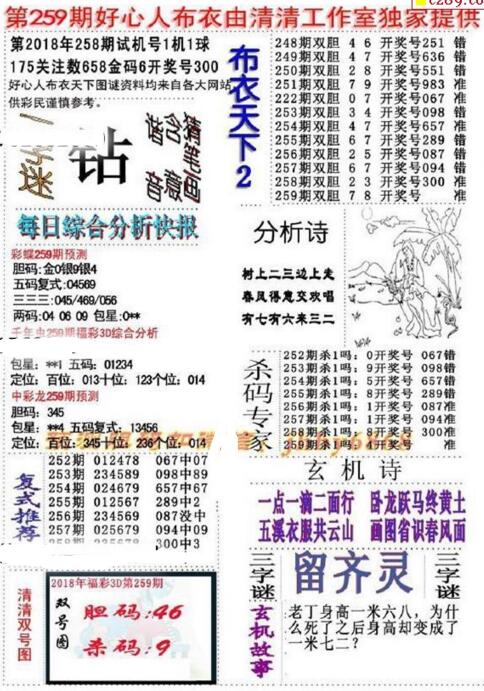 第259期好心人布衣由清清工作室独家提供
第2018年258期试机号1机1球
175关注数658金码6开奖号300
好心人布衣天下图谜资料均来自各大网站
供彩民谨慎参考。
字谜
钻
猜笔画
含意
谐音
每日综合分析快报
彩蝶259期预测
胆码:金0银9银4
五码复式:04569
三三三:045/469/056
两码:04 06 09 包星:0**
千年虫259期福彩3D综合分析
包星:**1 五码:01234
定位:百位:013十位:123个位:014
中彩龙259期预测
胆码:345
包星:**4 五码复式:13456
定位:百位:345十位:236个位:014
复式推荐
252期 012478 067中07
253期 234589 098中89
254期 024679 657中67
255期 012567 289中2
256期 234569 087没中
257期 025679 094中09
258期 235678 300中3
清清双号图
2018年福彩3D第259期
双号图
胆码:46
杀码:9
布衣天下2
248期双胆 4 6 开奖号251 错
249期双胆 4 7 开奖号636 错
250期双胆 2 8 开奖号551 错
251期双胆 7 9 开奖号983 准
222期双胆 0 7 开奖号067 准
253期双胆 3 4 开奖号098 错
254期双胆 4 7 开奖号657 准
255期双胆 6 7 开奖号289 错
256期双胆 2 5 开奖号087 错
257期双胆 6 7 开奖号094 错
258期双胆 2 3 开奖号300 准
259期双胆 7 8 开奖号 准
分析诗
树上二三边上走
春风得意交欢唱
有七有六来三二
杀码专家
252期杀1吗:0开奖号 067错
253期杀1吗:9开奖号 098错
254期杀1吗:6开奖号 657错
255期杀1吗:8开奖号 289错
256期杀1吗:1开奖号 087准
257期杀1吗:9开奖号 094错
258期杀1吗:8开奖号 300准
259期杀1吗:4开奖号 准
玄机诗
一点一滴二面行 卧龙跃马终黄土
五溪衣服共云山 画图省识春风面
三字谜
留齐灵
三字谜
玄机故事
老丁身高一米六八，为什
么死了之后身高却变成了
一米七二？